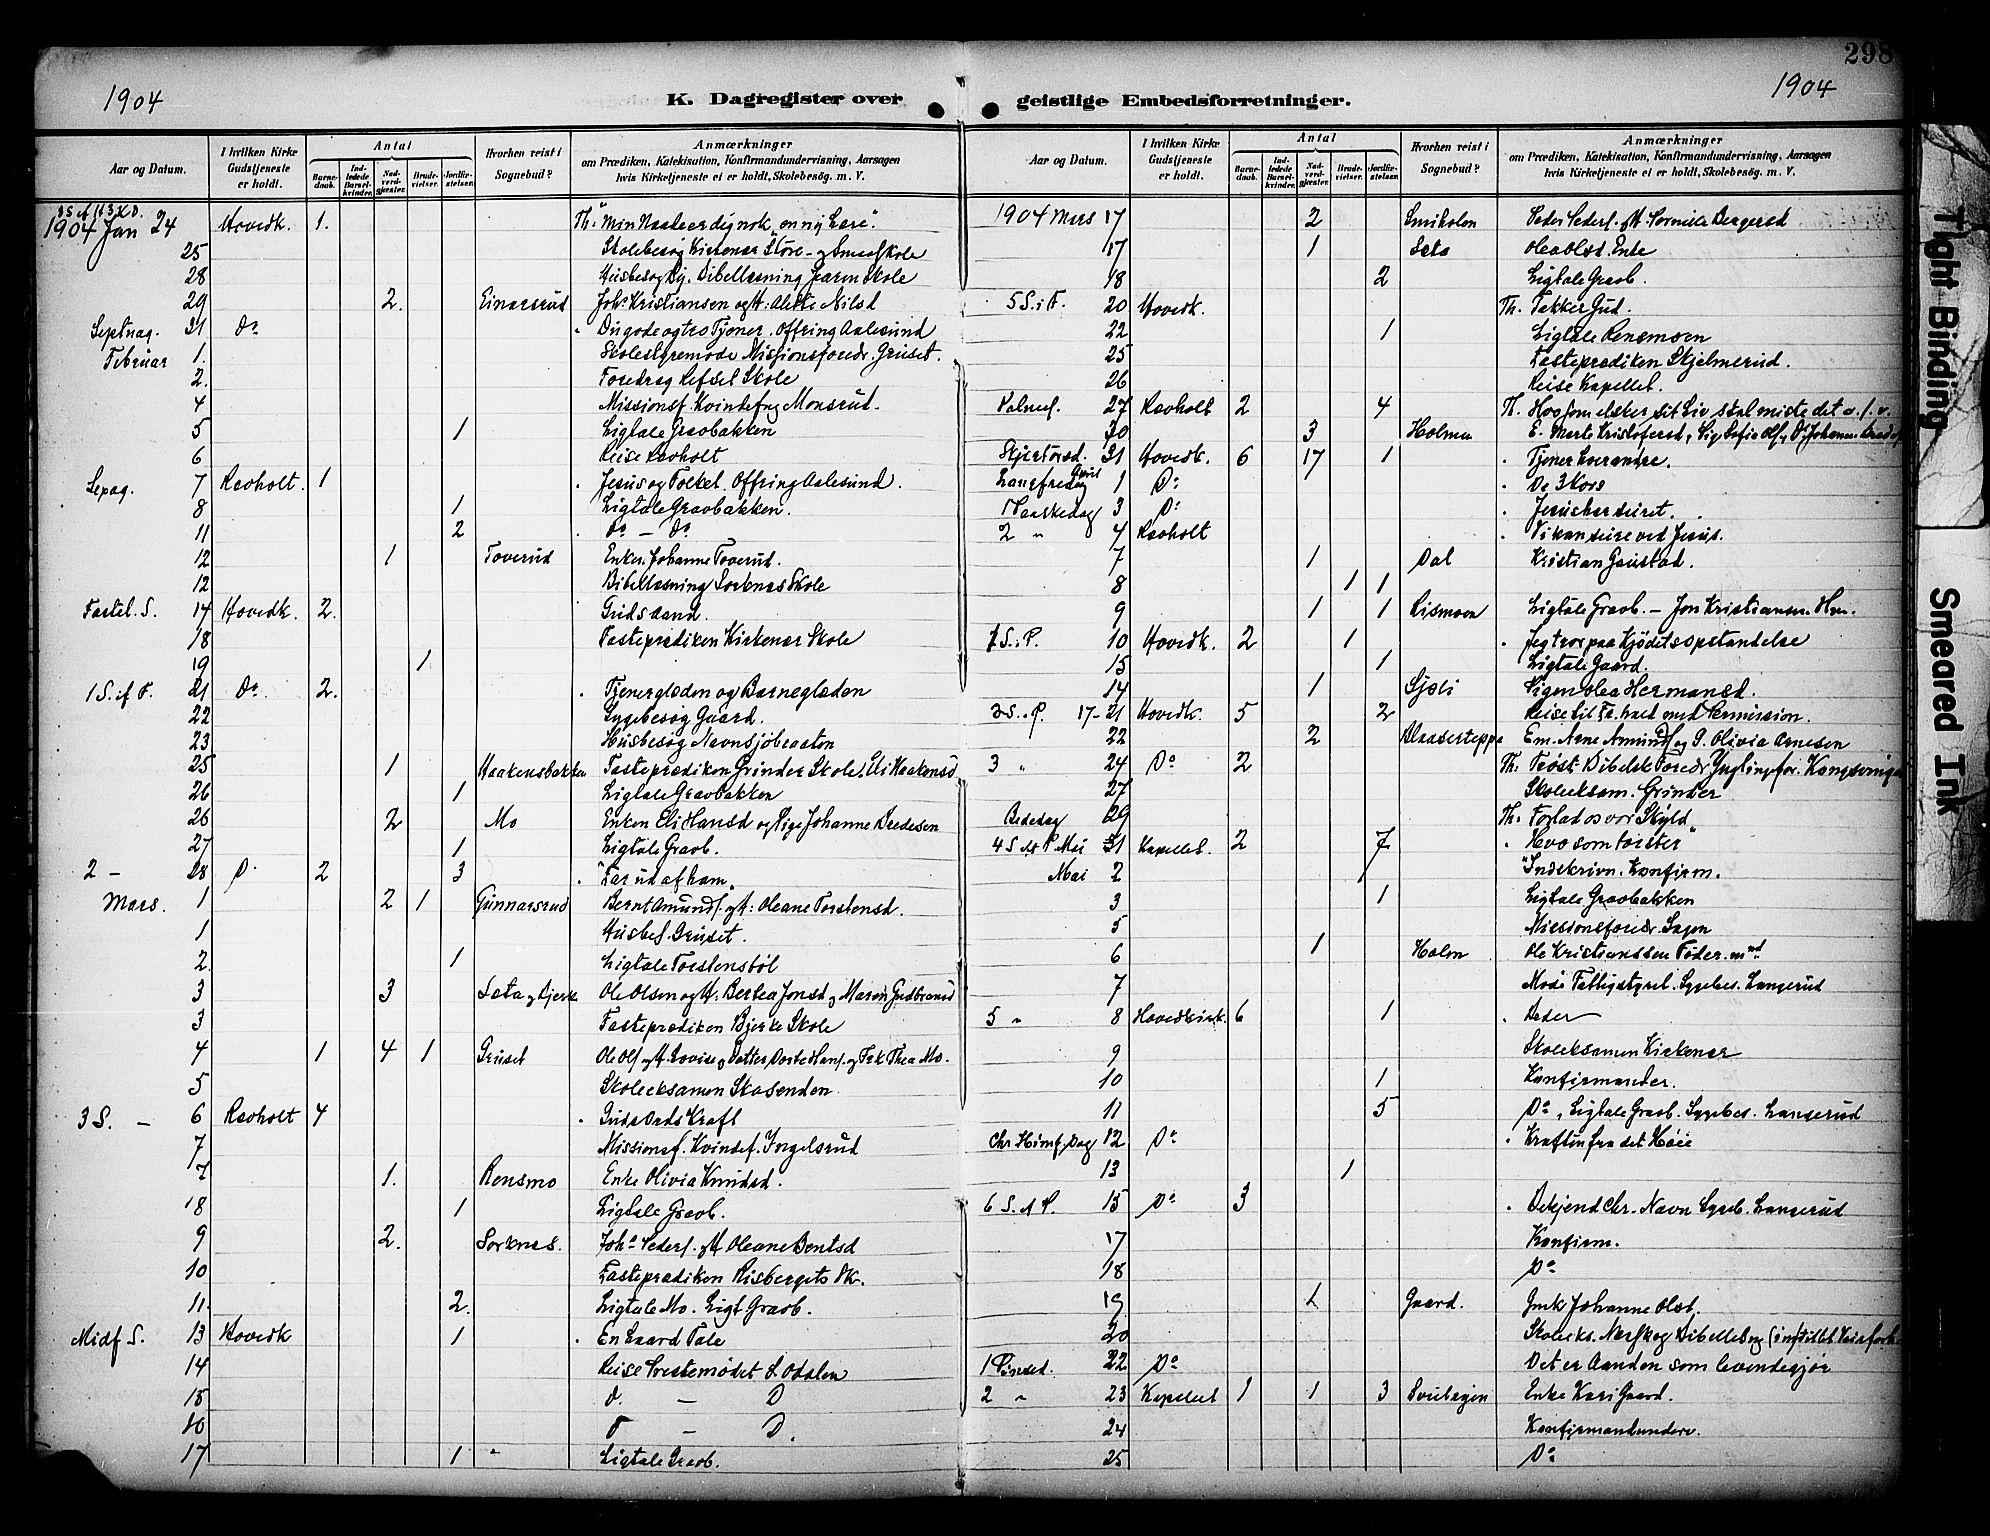 298
1904
K. Dagregister over geistlige Embedsforretninger.
1904
Aar og Datum. I hvilken Kirke Gudstjeneste er holdt. Antal Barnedaab. Indledede Barselkvinder. Nadverdgjester. Brudevielser. Jordfæstelser. Hvorhen reist i Sognebud? Anmærkninger om Prædiken, Katekisation, Konfirmandundervisning, Aarsagen hvis Kirketjeneste ei er holdt, Skolebesøg. m. V.
1904 Jan 24 Hovedk. 1. Th. "Min Naade er dig nok"
25 Skolebesøg Kirkenær Store- og Smaaskole
28 Bibellæsning Skole
29 2. Einarsrud Joh. Kristiansen og H: Alette Nilsd
Septuag. 31 Do Du gode og tro Tjener. Offring Aalesund
Februar 1. Skolestyremøde Missionsforedr. Gruset.
2. Foredrag Refset Skole
4 Missionsf. Kvindefng Monsrud.
5 1 Ligtale Gravbakken
6 Reise Ravholt
Sexag. 7 Ravholt. 1 Jesus og Folket. Offring Aalesund.
8 1 Ligtale Gravbakken.
11 2 do - do
12 1 Toverud Enken Johanne Toverud.
12 Bibellæsning Sorknes Skole
Fastel. S. 14 Hovedk. 2. Guds Aand.
18 Fasteprædiken Kirkenær Skole
19 1
1 S. i F. 21 Do. 2. Tjenerglæden og Barneglæden
22 Sygebesøg Gaard.
23 Husbesøg Navnsjøbraaten
25 1 Haakensbakken Fasteprædiken Grinder Skole. Eli Haakensd
26 1 Ligtale Gravbakken
26 2 Mo Enken Eli Hansd og Pige Johanne Bredesen
27 1 Ligtale Gravb.
2 - 28 D. 2 3 "Far ud af ham"
Mars. 1 2 1 Gunnarsrud Bernt Amunds. og H: Oleane Torstensd.
1 Husbes. Gruset.
2. 1 Ligtale Torstensbøl
3 3 Sæta og Bjerk Ole Olsen og H: Bertea Jonsd og Maren Gudbransd
3 Fasteprædiken Bjerke Skole
4 1 4 1 Gruset Ole Ols og H. Lovise og Datter Dorte Hans. og Frk Thea Mo.
5 Skoleeksamen Skasenden
3 S. - 6 Ravholt 4 Guds Ords Kraft
7 Missionsf. Kvindef. Ingelsrud
7 1. Rensmo Enke Olivia Knudsd.
18 1 Ligtale Gravb.
9 2. Sorknes. Joh. Peders. og H Oleane Berntsd
10 Fasteprædiken Risberget Sk.
11. 2. Ligtale Mo. Ligt. Gravb.
Midf S. 13 Hovedk 1 En haard Tale
14 Reise Prestemødet S. Odalen
15 D. - D
16 D - D.
17 1 " Ligtale Gravb.
Aar og Datum. I hvilken Kirke Gudstjeneste er holdt. Antal Barnedaab. Indledede Barselkvinder. Nadverdgjester. Brudevielser. Jordfæstelser. Hvorhen reist i Sognebud? Anmærkninger om Prædiken, Katekisation, Konfirmandundervisning, Aarsagen hvis Kirketjeneste ei er holdt, Skolebesøg. m. V.
1904 Mars 17 2 Smikolen Peder Peders. og H Pernille Bergersd
17 1 Sæta Olea Olsd. Enke
18 2 Ligtale Gravb.
5 S. i F. 20 Hovedk. Th. Takker Gud.
22 1 Ligtale Rensmoen
25 Fasteprædiken Skjelmerud.
26 Reise Kapellet.
Palmes. 27 Ravholt 2 4 Th. Hvo som elsker sit Liv skal miste det o.s.v.
30 3 Holmen E. Marte Kristofersd,
Skjærtorsd. 31 Hovedk. 6 17 1 Tjener hverandre.
Langfredag April 1 Do De 3 Kors
1 Paaskedag 3 Do Jesus har seiret.
2 " 4 Ravholt Vi kan seire ved Jesus.
7 1 Dal Kristian Gaustad.
8 1 1
9 1 1 Rismoen Ligtale Gravb. - Jon Kristiansen Hm.
1 S. i P. 10 Hovedk. 2 1 Jeg tror paa Kjødets opstandelse
15 1 Ligtale Gaard.
14 1 Sjøli Pigen Olea Hermansd.
17-21 Hovedk. 5 2 Reise til med Permission.
22 2 Em. Arne Amunds og P. Olivia Arnesen
3 " 24 Do 2 Th: Trøst. Bibelsk Foredr Ynglingfor. Kongsvinger
27 Skoleeksam. Grinder
Bededag 29 Th: Forlad os vor Skyld
4 S. Mai 31 Kapellet. 2 7 "Hvo som tørster"
Mai 2 Indskrivn. Konfirm.
3 1 Ligtale Gravbakken
5 Missionsforedr. Sagen
6 1 Holm Ole Kristianssen Fødermnd.
7 Møde Fattigstyret. Sygebes. Langerud
5 " 8 Hovedkirk. 6 1 Beder
9 Skoleeksamen Kirkenær
10 1 Konfirmander.
11 5 Do, Ligtale Gravb. Sygebes. Langerud
Chr Himf. Dag 12 Do Kraften fra det Høie
13 1
6 S. e P. 15 Do 3 Bekjend Chr. Navn Sygeb. Langerud
17 Konfirm.
18 Do
19 1 Gaard. Gmk Johanne Olsd.
20 Skoleeks.
1 Pinsed. 22 Do Det er Aanden som levendegjør
2 " 23 Kapellet 1 1 3 Svebagen Enke Kari Gaard.
24 Konfirmandunderv.
25 Do
Tight Binding
Smeared Ink